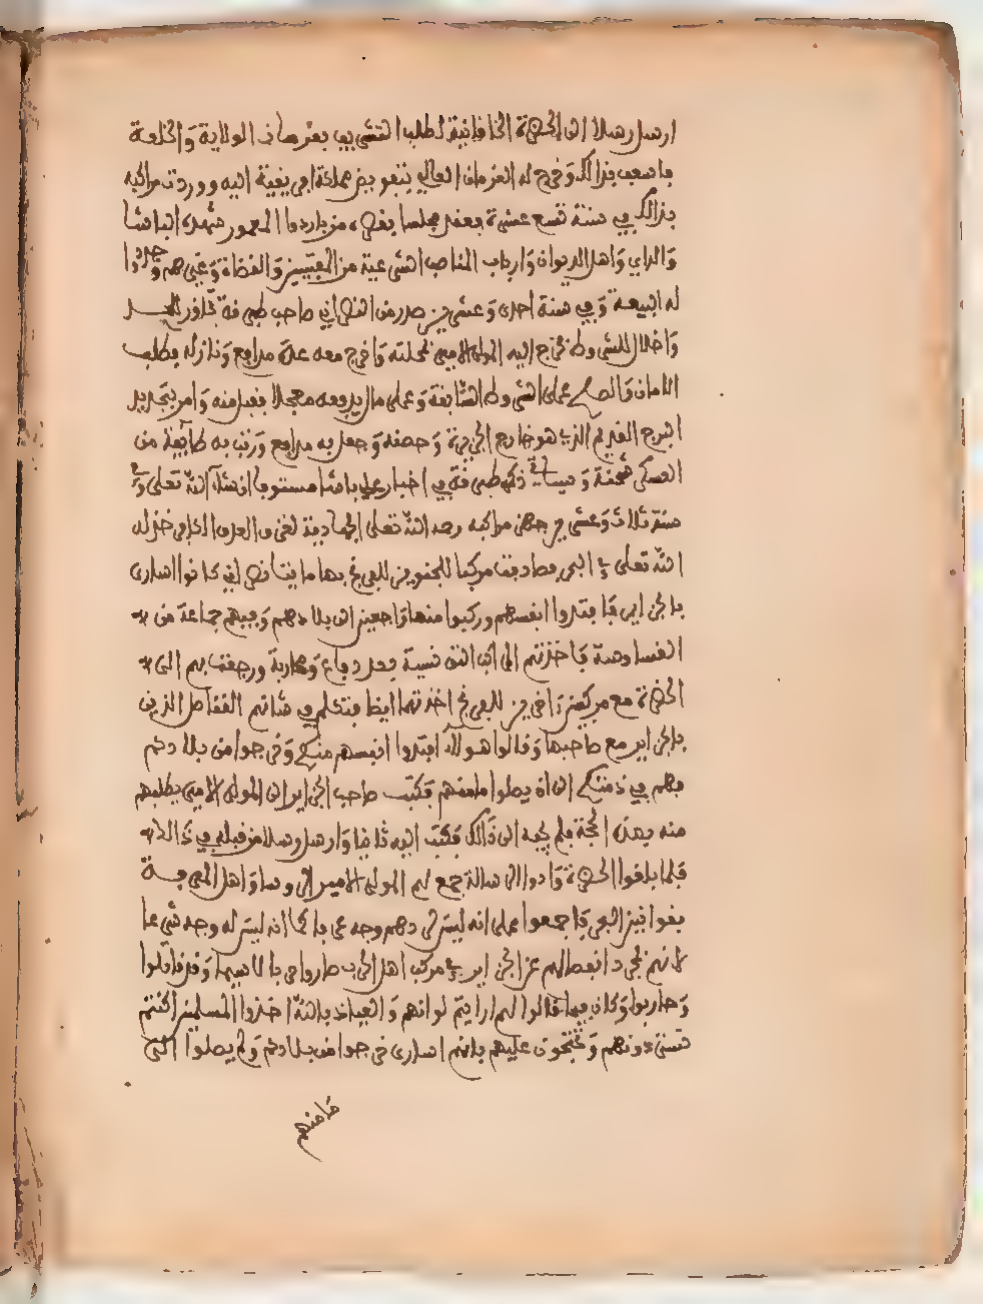 ارسل رسلا الى الحضرة الخاقانية لطلب التشريف بفرمان الولاية والخلعة
باسعف بذالك وخرج له الفرمان العالي بتفويض مملكة افريقية اليه ووردت مراكبه
بذالك في سنة تسع عشرة بعقد مجلسا بقصره من باردوا المعمور شهده الباشا
والداي واهل الديوان وارباب المناصب الشرعية من المفتيين والقضاة وغيرهم وجددوا
له البيعة وفي سنة احدى وعشرين صدر من النصراني صاحب طبرقة تجاوز للحد
واخلال للشروط فخرج اليه المولى الامير بمحلته واخرج معه عدة مدافع ونازله فطلب
الامان والصلح على الشروط السابقة وعلى مال يدفعه معجلا فقبل منه وامر بتجديد
البرج القديم الذي هو خارج الجزيرة وحصنه وجعل به مدافع ورتب به طايفة من
العسكر شحنة وسياتي ذكر طبرقة في اخبار علي باشا مستوفا ان شاء الله تعلى وفي
سنة ثلاث وعشرين جهز مراكبه رحمه الله تعلى الجهادية لغزو العدو الكافر خذله
الله تعلى في البحر فصادفت مركبا للجنويز للبرنجي بها ما ينا نصراني كانوا اسارى
بالجزاير فافتدوا انفسهم وركبوا منها راجعين الى بلادهم وفيهم جماعة من
القساوسة فاخذتهم المراكب التونسية بعد دفاع ومحاربة ورجعت بهم الى
الحضرة مع مركبين اخرين للبرنجي اخذتهما ايضا فتكلم في شانهم القناصل الذين
بالجزاير مع صاحبها وقالوا هولاء افتدوا انفسهم منكم وخرجوا من بلادكم
فهم في ذمتكم الى ان يصلوا مامنهم فكتب صاحب الجزاير الى المولى الامير يطلبهم
منه بهذه الحجة فلم يجبه الى ذالك فكتب اليه ثانيا وارسل رسلا من قبله في ذالك
فلما بلغوا الحضرة وادوا الرسالة جمع لهم المولى الامير الروسا واهل المعرفة
بقوانين البحر فاجمعوا على انه ليس لردهم وجه عرفا كما انه ليس له وجه شرعا
لانهم بمجرد انفصالهم عن الجزاير في مركب اهل الحرب صاروا حربا لاسيما وقد قاتلوا
وحاربوا وكان فيما قالوا لهم ارايتم لو انهم والعياذ بالله اخذوا المسلمين اكنتم
تستردونهم وتحتجون عليهم بانهم اسارى خرجوا من بلادكم ولم يصلوا الى
مامنهم